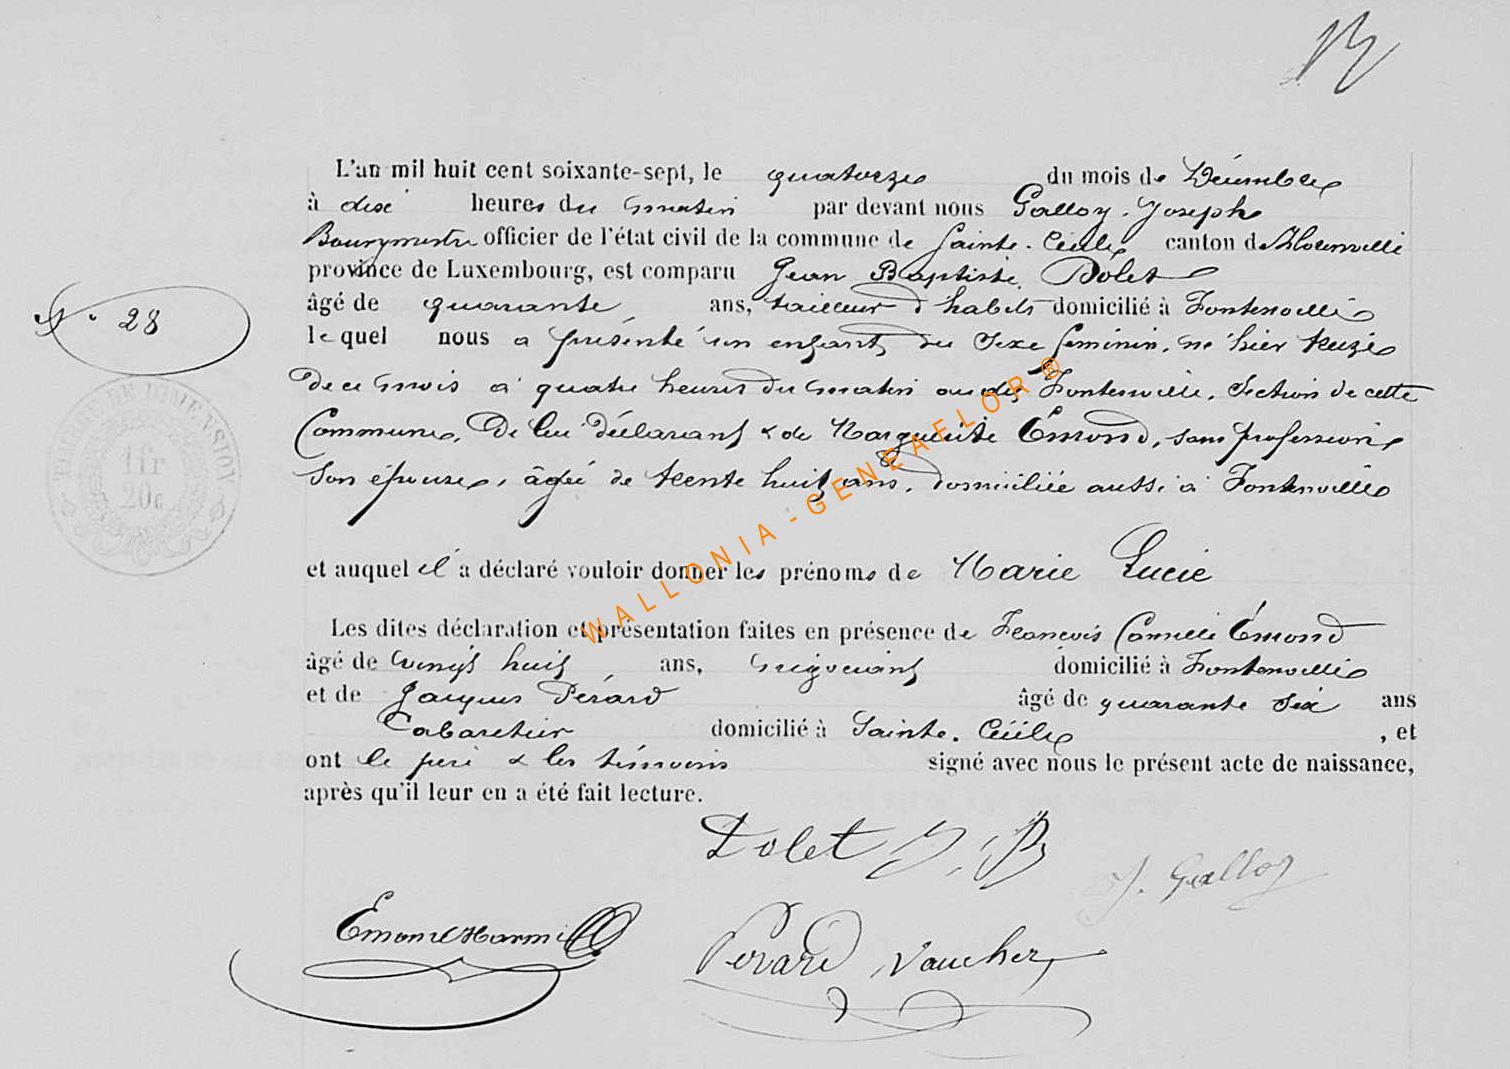 L'an mil huit cent soixante-sept, le quatorze du mois de Décembre
à dix heures du matin par devant nous Galloy Joseph
Bourgmestre officier de l'état civil de la commune de Sainte-Cécile canton de Florenville
province de Luxembourg, est comparu Jean Baptiste Dolet
âgé de quarante ans, tailleur d'habits domicilié à Fontenoille
N° 28
lequel nous a présenté un enfant du sexe féminin, né hier treize
de ce mois à quatre heures du matin au dit Fontenoille, Section de cette
Commune, de lui déclarant & de Marguerite Émond, sans profession
son épouse, âgée de trente huit ans, domiciliée aussi à Fontenoille
1 fr
20c
et auquel il a déclaré vouloir donner les prénoms de Marie Lucie
WALLONIA-GENEAFLOR®
Les dites déclaration et présentation faites en présence de François Camille Émond
âgé de vingt huit ans, négociant domicilié à Fontenoille
et de Jacques Pérard âgé de quarante six ans
Cabaretier domicilié à Sainte-Cécile, et
ont le père & les témoins signé avec nous le présent acte de naissance,
après qu'il leur en a été fait lecture.
Dolet J. B
J. Galloy
Emond
Perard Vaucher